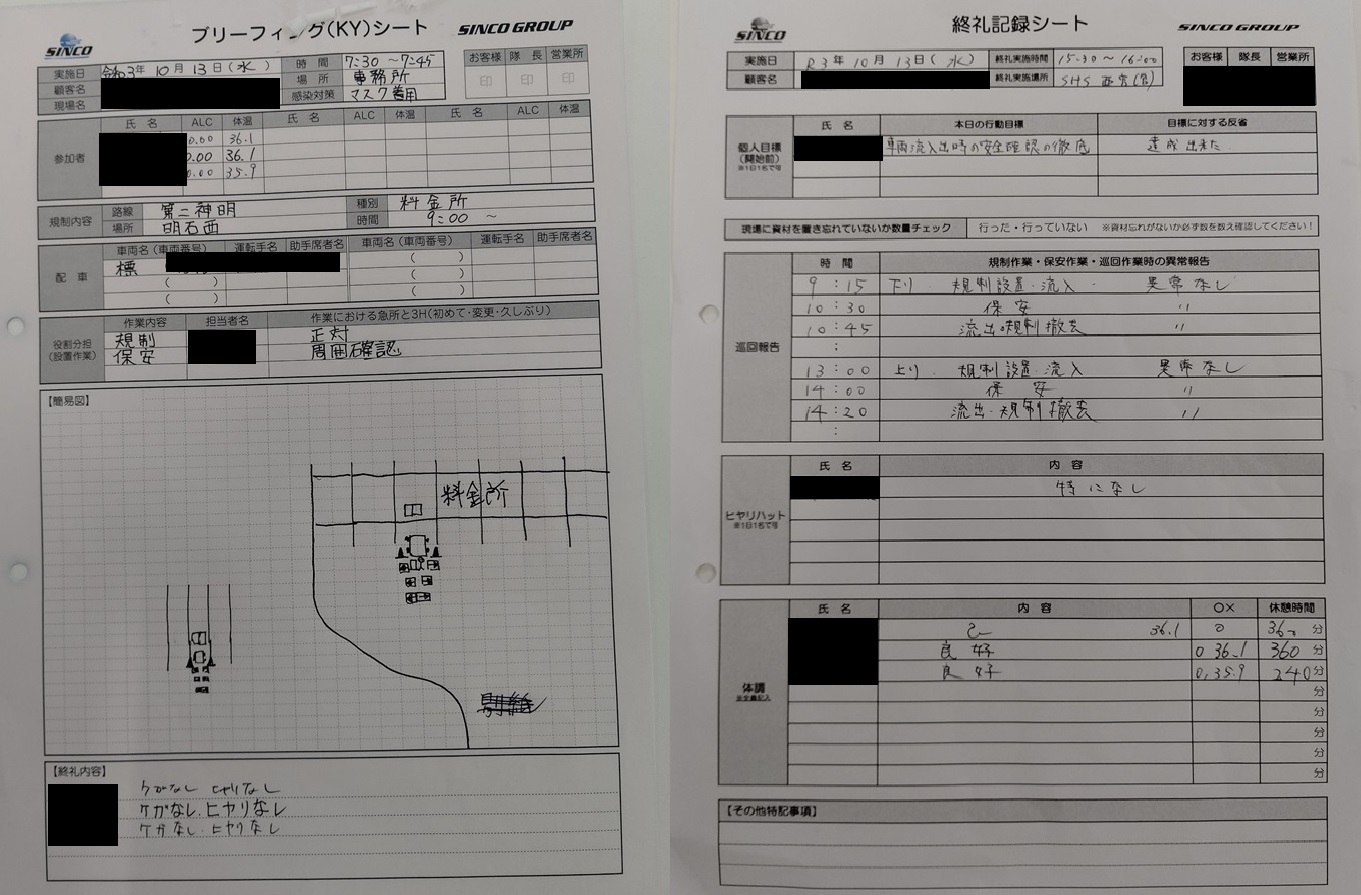 ブリーフィング(KY)シート
SINCO GROUP
SINCO
実施日 令和3年 10月 13日(水)
時間 7:30 ~7:45
顧客名
場所 事務所
現場名
感染対策 マスク着用
お客様 隊長 営業所
印 印 印
参加者
氏名 ALC 体温 氏名 ALC 体温 氏名 ALC 体温
0.00 36.1
0.00 36.1
0.00 35.9
規制内容
路線 第二神明 種別 料金所
場所 明石西 時間 9:00 ~
配車
車両名(車両番号) 運転手名 助手席者名 車両名(車両番号) 運転手名 助手席者名
標 ( )
( ) ( )
( ) ( )
役割分担
(設置作業)
作業内容 担当者名 作業における急所と3H(初めて・変更・久しぶり)
規制 正対
保安 周囲確認
【簡易図】
料金所
【終礼内容】
ケガなし ヒヤリなし
ケガなし.ヒヤリなし
ケガなし.ヒヤリなし
SINCO
終礼記録シート
SINCO GROUP
実施日 R3年10月13日(水)
終礼実施時間 15:30~16:00
顧客名
終礼実施場所 SHS
お客様 隊長 営業所
個人目標
(開始前)
※1日1名で可
氏名 本日の行動目標 目標に対する反省
車両流入出時の安全確認の徹底 達成出来た.
現場に資材を置き忘れていないか数量チェック 行った・行っていない ※資材忘れがないか必ず数を数え確認してください!
巡回報告
時間 規制作業・保安作業・巡回作業時の異常報告
9:15 下り. 規制設置・流入. 異常なし
10:30 保安 〃
10:45 流出・規制撤去 〃
:
13:00 上り. 規制設置・流入 異常なし
14:00 保安 〃
14:20 流出・規制撤去 〃
:
ヒヤリハット
※1日1名で可
氏名 内容
特になし
体調
※全員記入
氏名 内容 OX 休憩時間
36.1 0 360 分
良好 0 36.1 360 分
良好 0,35.9 240 分
分
分
分
分
分
【その他特記事項】